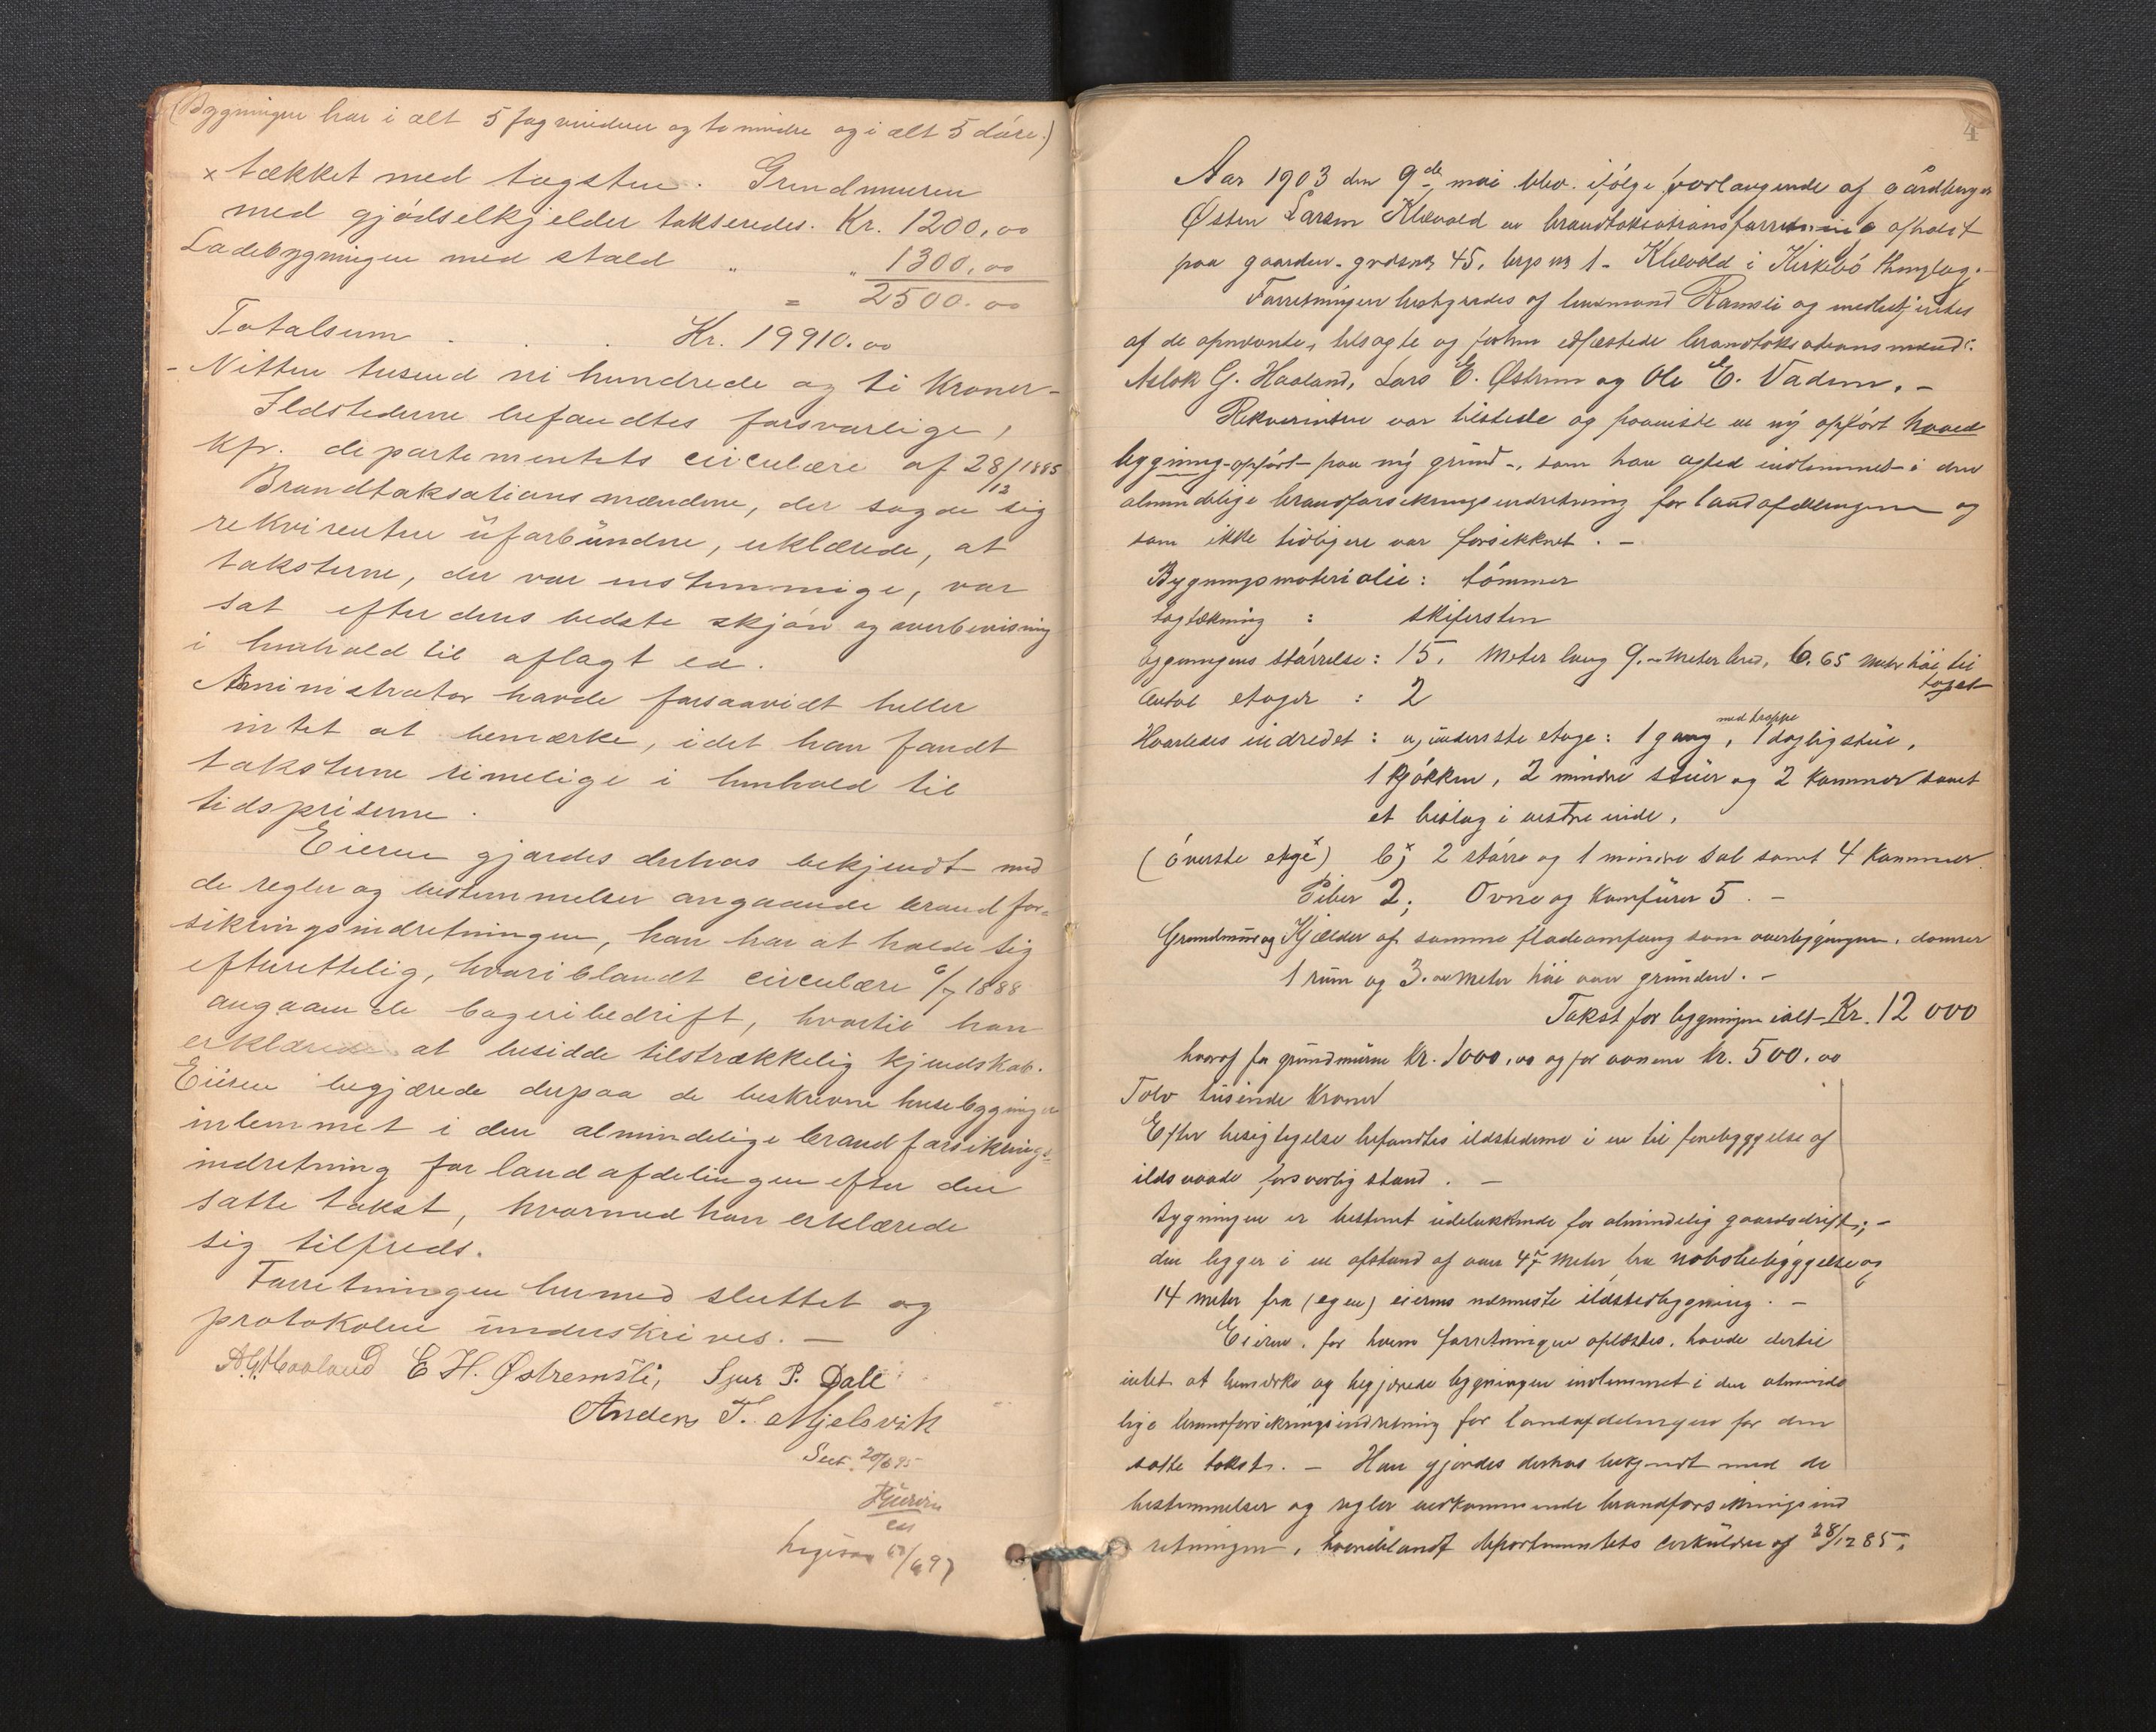 (Bygningen har i alt 5 fag vinduer og to mindre og i alt 5 døre.)
x tækket med tagsten. Grundmuren
med gjødselkjelder takseredes. Kr. 1200,00
Ladebygningen med stald " " 1300,00
= 2500.00
Totalsum . . . Kr. 19910.00
- Nitten tusend ni hundrede og ti Kroner -
Ildstederne befandtes forsvarlige,
kfr. departementets circulære af 28/12 1885
Brandtaksationsmændene, der sagde sig
rekvirenten uforbundne, erklærede, at
taksterne, der var enstemmige, var
sat efter deres bedste skjøn og overbevisning
i henhold til aflagt ed.
Administrator havde forsaavidt heller
intet at bemærke, idet han fandt
taksterne rimelige i henhold til
tidspriserne.
Eieren gjordes derhos bekjendt med
de regler og bestemmelser angaaende brandfor-
sikringsindretningen, han har at holde sig
efterrettelig, hvoriblandt circulære 6/7 1888
angaaende bageribedrift, hvortil han
erklærede at besidde tilstrækkelig kjendskab.
Eieren begjærede derpaa de beskrevne husebygninger
inlemmet i den almindelige brandforsikrings-
indretning for landafdelingen efter den
satte takst, hvormed han erklærede
sig tilfreds.
Forretningen hermed sluttet og
protokolen underskrives. —
A. G. Haaland E H. Østremsli, Sjur P. Dale
Anders T. Mjelsvik
Seet 20/6 95
4
Aar 1903 den 9de mai blev ifølge forlangende af gårdbruger
Østen Larsen Klævold en brandtaksationsforretning afholdt
paa gaarden gardsnr 45, brgs nr 1 - Klævold i Kirkebø thinglag.
Forretningen bestyredes af lensmand Ramsli og medbetjentes
af de opnævnte, tilsagte og forhen edfæstede brandtaksationsmænd:
Aslak G. Haaland, Lars E. Østrem og Ole E. Vadem. -
Rekvirenten var tilstede og paaviste en ny opført hoved
bygning - opført paa ny grund -, som han agted indlemmet i den
almindelige brandforsikringsindretning for landafdelingen og
som ikke tidligere var forsikkret. -
Bygningsmateriale: tømmer
tagtækning : skifersten
bygningens størrelse: 15. Meter lang 9. - Meter bred, 6.65 Meter høi til
taget
Antal etager : 2
Hvorledes indredet: a, underste etage: 1 gang med trappe, 1 dagligstue,
1 kjøkken, 2 mindre stuer og 2 kammer samt
et bislag i vestre ende.
(øverste etage) b, 2 større og 1 mindre sal samt 4 kammer
Piber 2; Ovne og komfurer 5. -
Grundmur og Kjælder af samme fladeomfang som overbygningen, danner
1 rum og 3.00 Meter høi over grunden. -
Takst for bygningen ialt Kr. 12 000
hvoraf for grundmuren Kr. 1000,00 og for ovnene kr. 500,00
Tolv tusinde Kroner
Efter besigtigelse befandtes ildstederne i en til forebyggelse af
ildsvaade forsvarlig stand. —
Bygningen er bestemt udelukkende for almindelig gaardsdrift; -
den ligger i en afstand af over 47 Meter fra nabobebyggelse og
14 meter fra (egen) eierens nærmeste ildstedbygning. -
Eieren, for hvem forretningen oplæstes, havde dertil
intet at bemærke og begjærede bygningen indlemmet i den alminde
lige brandforsikringsindretning for landafdelingen for den
satte takst. - Han gjordes derhos bekjendt med de
bestemmelser og regler vedkommende brandforsikringsind
retningen, hvoriblandt departementets cirkulære af 28/12 85.